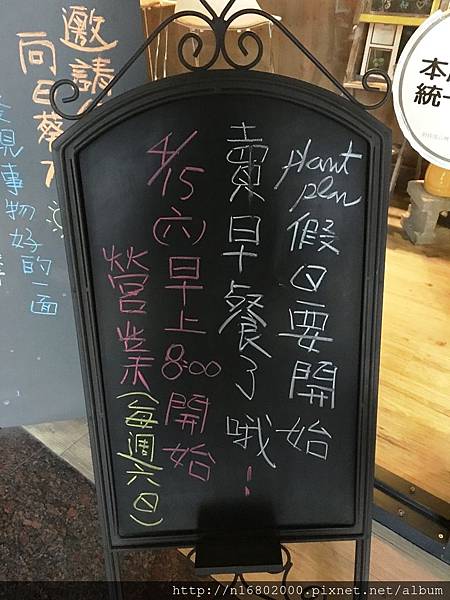 plant
plan 假日要開始
賣早餐了哦!
4/15(六)早上8:00開始
營業(每週六日)
邀請
向日葵
發現事物好的一面
本
統一
http://n16802000.pixnet.net/album